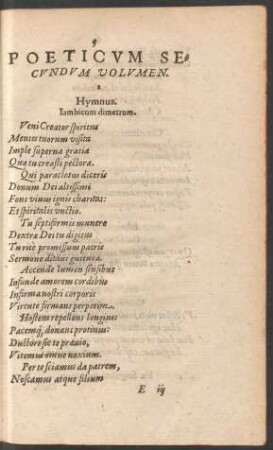 POETICVM SE-
CVNDVM VOLVMEN.
Hymnus.
Iambicum dimetrum.
Veni Creator spiritus
Mentes tuorum visita
Imple superna gratia
Quæ tu creasti pectora.
Qui paracletus diceris
Donum Dei altissimi
Fons viuus ignis charitas
Et spiritalis vnctio.
Tu septiformis munere
Dextræ Dei tu digitus
Tu rite promissum patris
Sermone ditans guttura.
Accende lumen sensibus
Infunde amorem cordibus
Infirma nostri corporis
Virtute firmans perpetim.
Hostem repellens longius
Pacemq́; donans protinus
Ductore sic te præuio,
Vitemus omne noxium.
Per te sciamus da patrem,
Noscamus atque filium
E iij